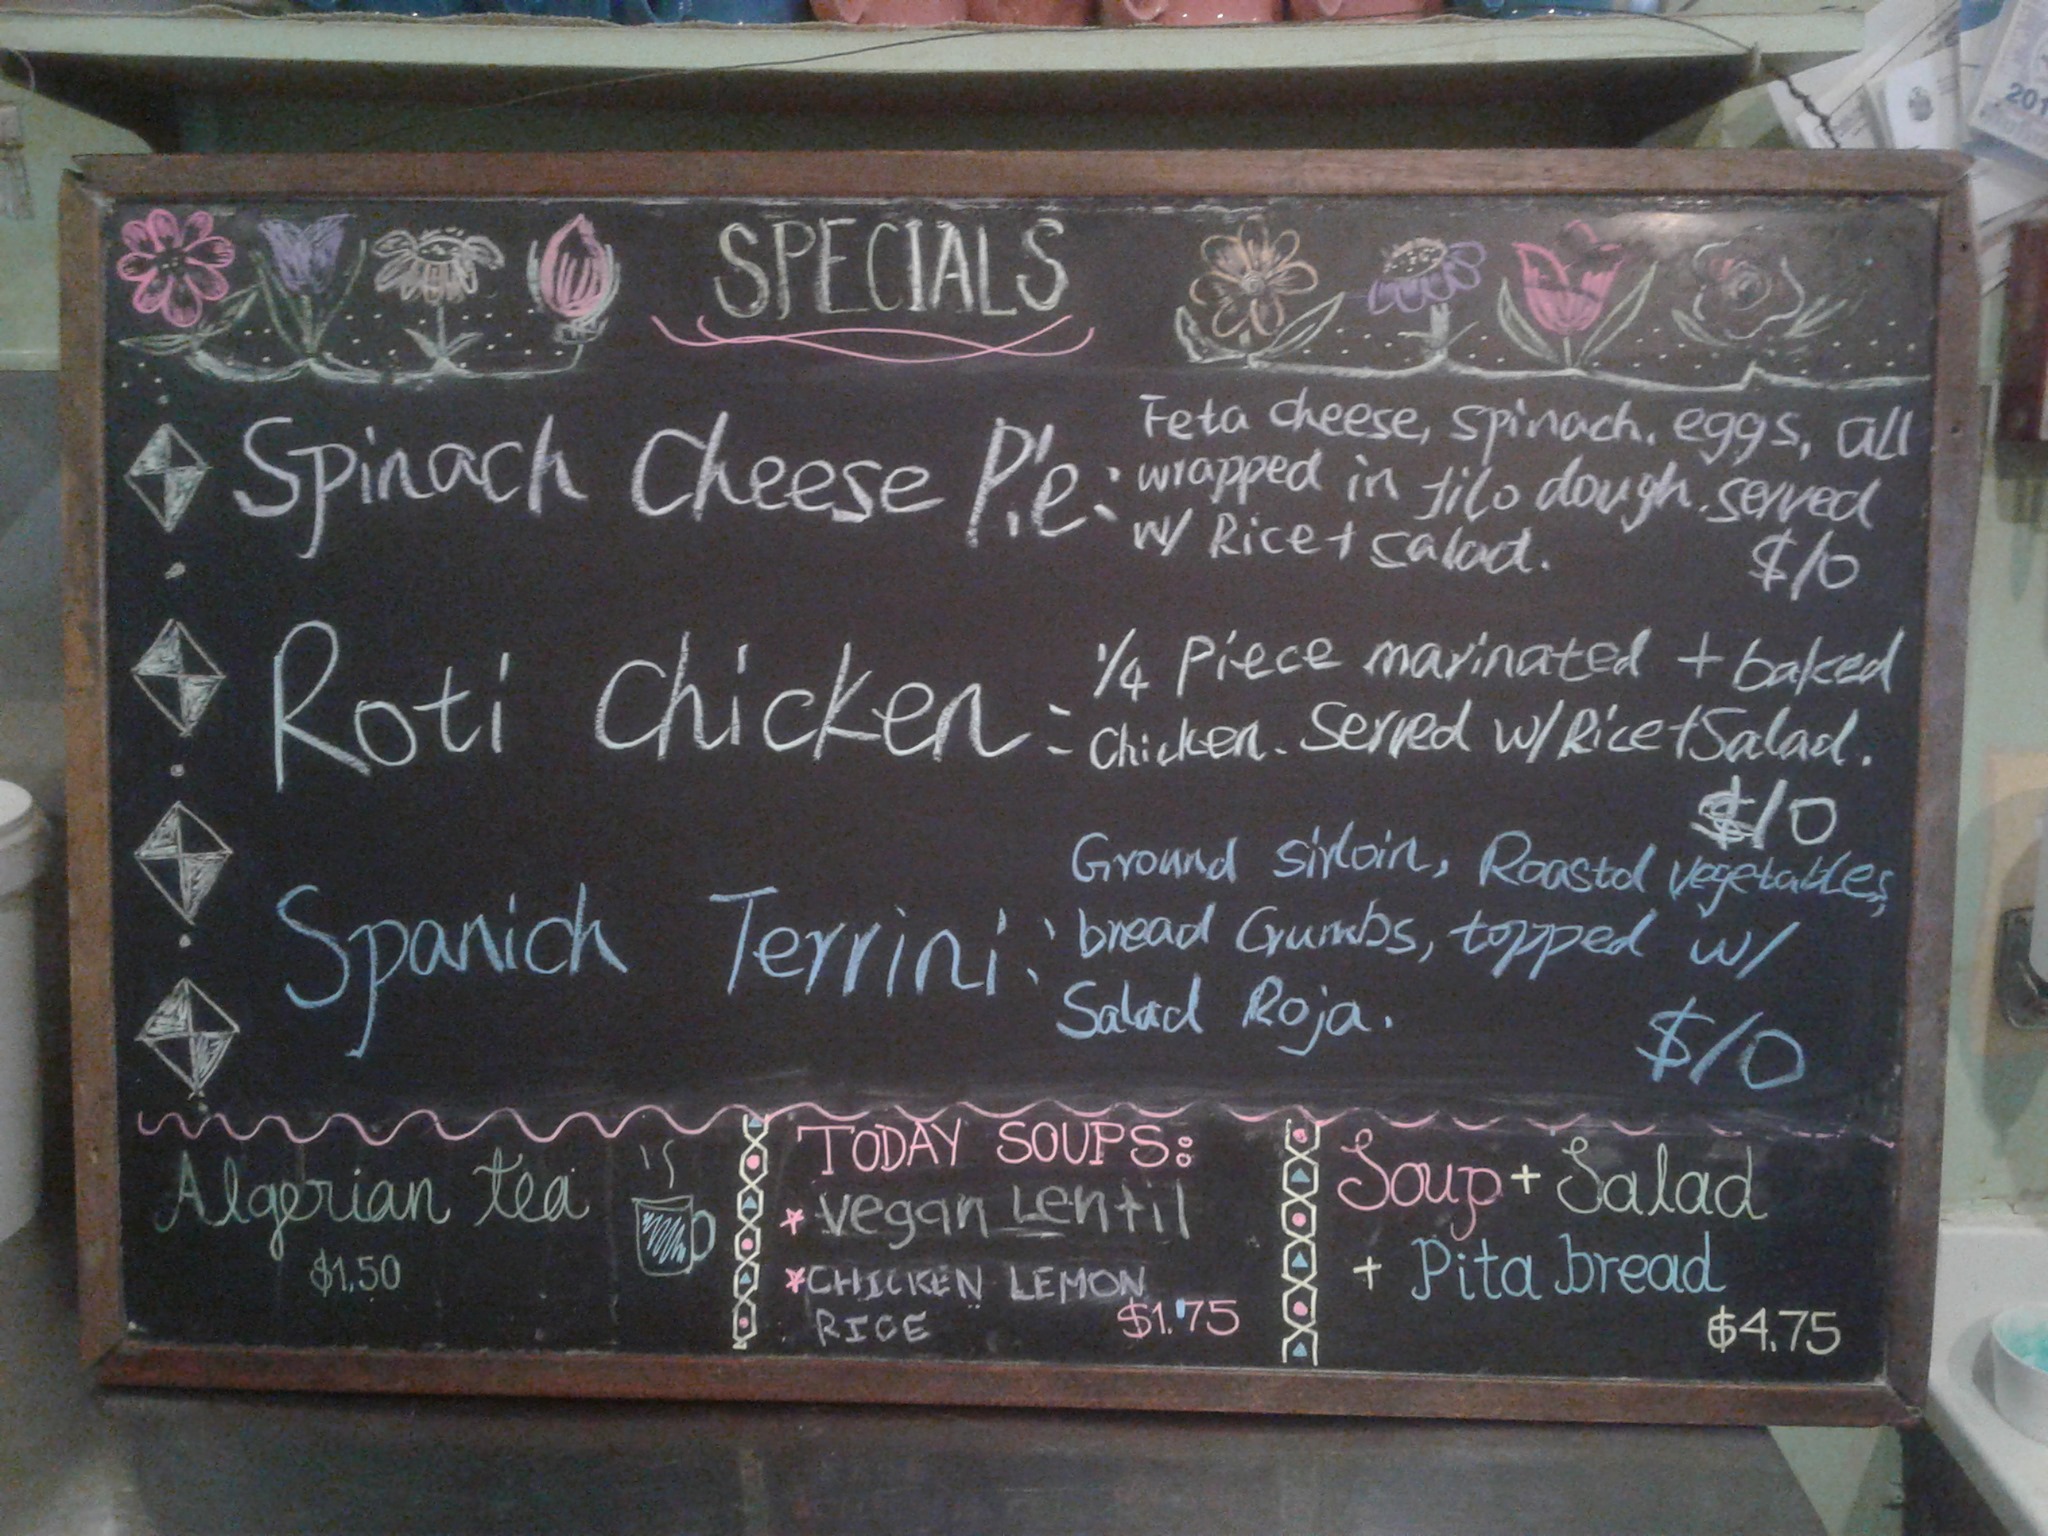 201
SPECIALS
Spinach Cheese Pie:
Feta cheese, spinach, eggs, all
wrapped in filo dough. served
w/ Rice + salad.
$10
Roti Chicken:
1/4 Piece marinated + baked
chicken. Served w/ Rice + Salad.
$10
Spanich Terrini:
Ground sirloin, Roastd vegetables,
bread Crumbs, topped w/
Salad Roja.
$10
Algerian tea
$1.50
TODAY SOUPS:
* Vegan Lentil
* CHICKEN LEMON
RICE
$1.75
Soup + Salad
+ Pita bread
$4.75